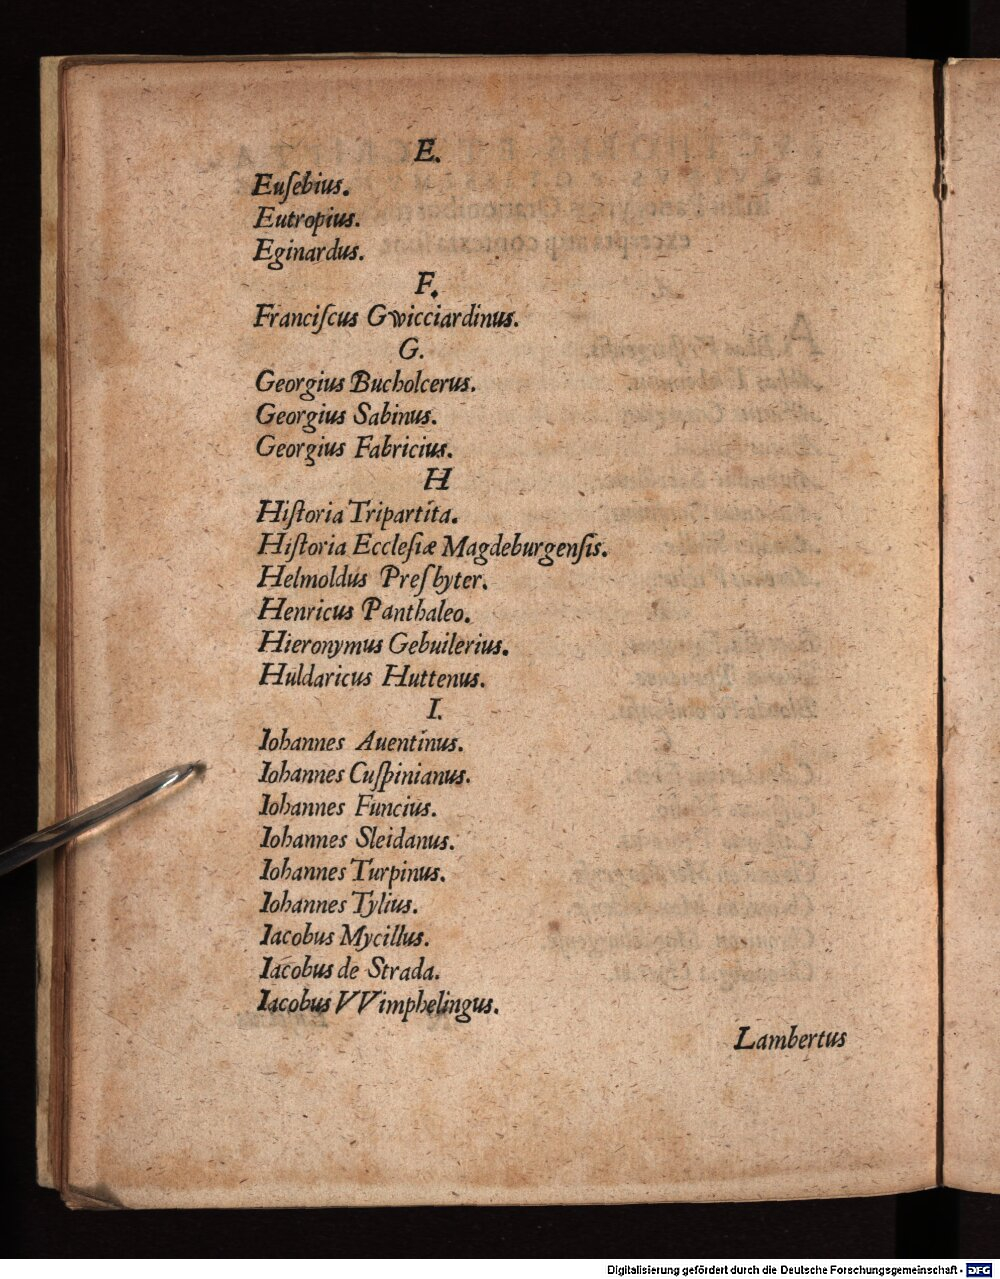 E.
Euſebius.
Eutropius.
Eginardus.
F.
Franciſcus Gwicciardinus.
G.
Georgius Bucholcerus.
Georgius Sabinus.
Georgius Fabricius.
H
Hiſtoria Tripartita.
Hiſtoria Eccleſiæ Magdeburgenſis.
Helmoldus Preſbyter.
Henricus Panthaleo.
Hieronymus Gebuilerius.
Huldaricus Huttenus.
I.
Iohannes Auentinus.
Iohannes Cuſpinianus.
Iohannes Funcius.
Iohannes Sleidanus.
Iohannes Turpinus.
Iohannes Tylius.
Iacobus Mycillus.
Iacobus de Strada.
Iacobus VVimphelingus.
Lambertus
Digitalisierung gefördert durch die Deutsche Forschungsgemeinschaft - DFG